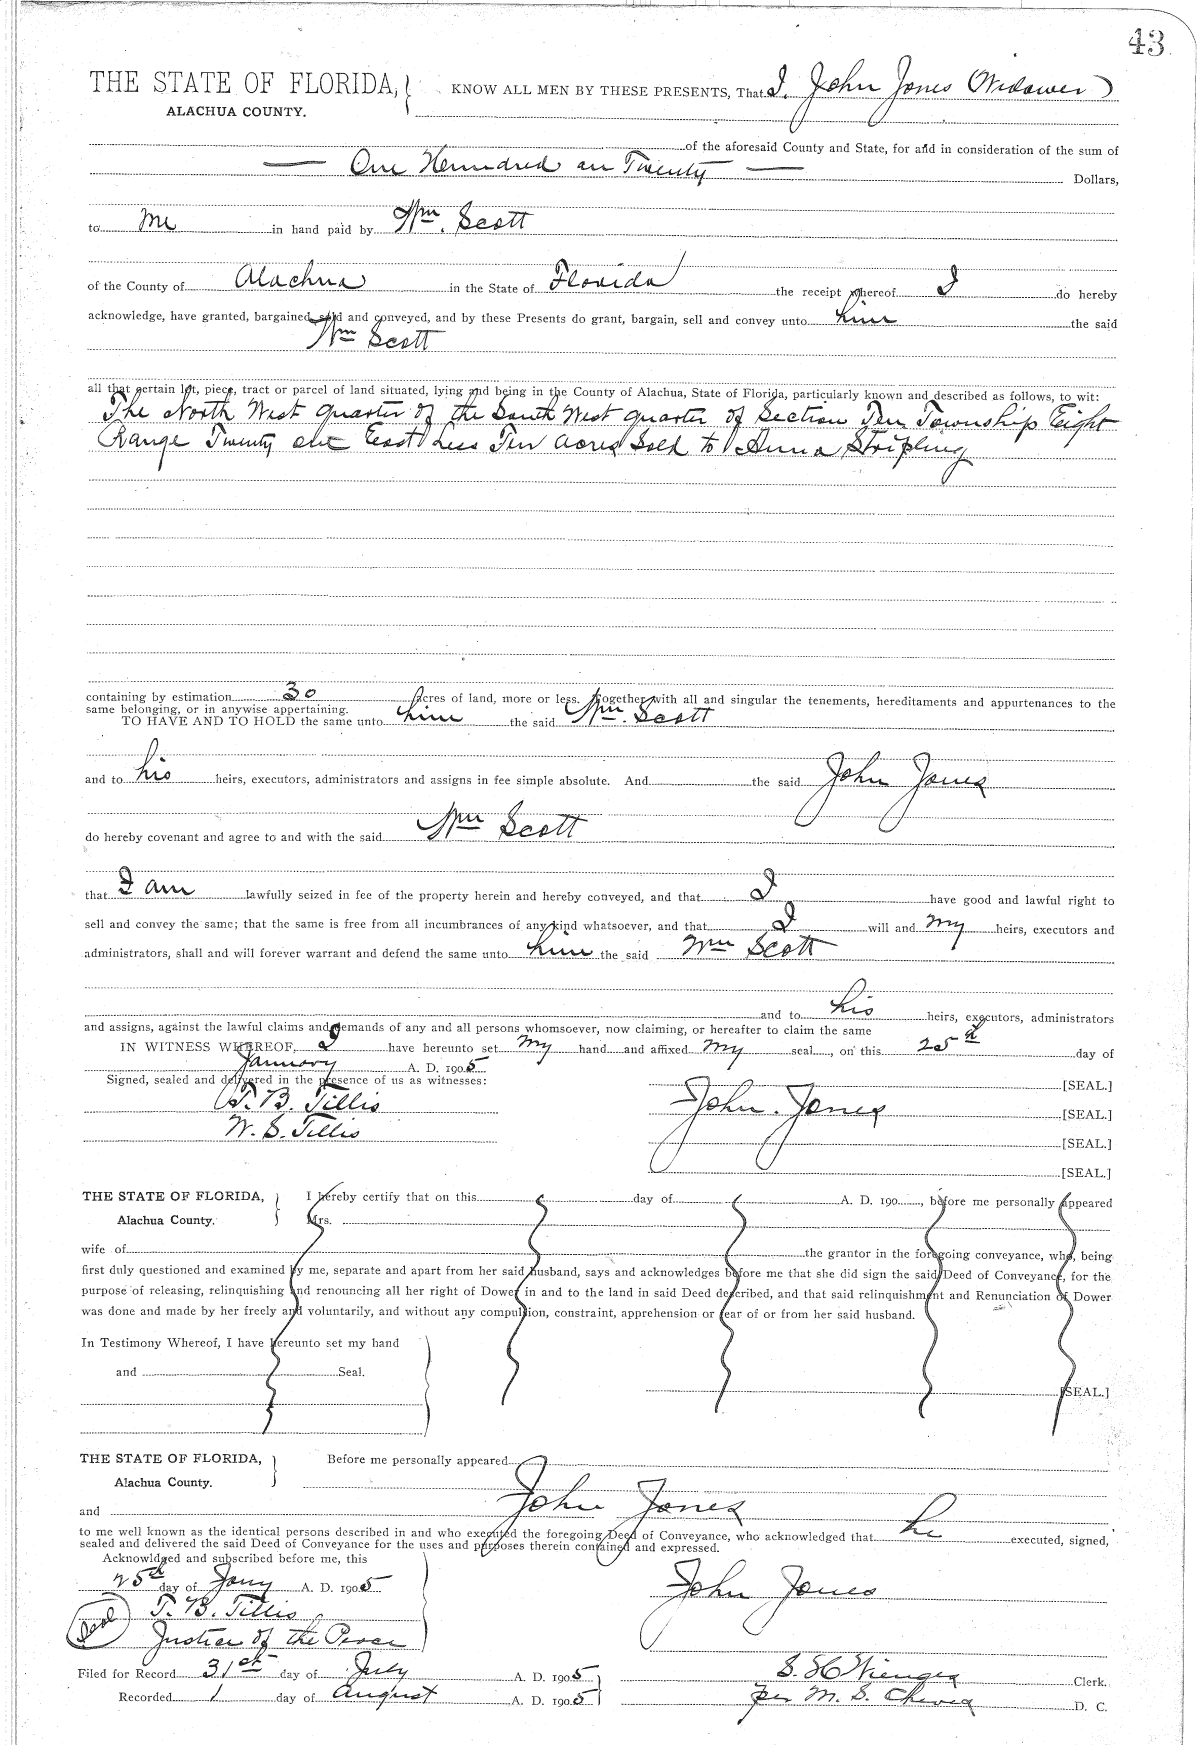 43
THE STATE OF FLORIDA, KNOW ALL MEN BY THESE PRESENTS, That I, John Jones (Widower)
ALACHUA COUNTY.
of the aforesaid County and State, for and in consideration of the sum of
One Hundred an Twenty Dollars,
to me in hand paid by Wm. Scott
of the County of Alachua in the State of Florida the receipt whereof I do hereby
acknowledge, have granted, bargained, sold and conveyed, and by these Presents do grant, bargain, sell and convey unto him the said
Wm Scott
all that certain lot, piece, tract or parcel of land situated, lying and being in the County of Alachua, State of Florida, particularly known and described as follows, to wit:
The North West quarter of the South West quarter of Section Ten Township Eight
Range Twenty one East Less Ten acres Sold to Anna Stripling
containing by estimation 30 acres of land, more or less. Together with all and singular the tenements, hereditaments and appurtenances to the
same belonging, or in anywise appertaining.
TO HAVE AND TO HOLD the same unto him the said Wm. Scott
and to his heirs, executors, administrators and assigns in fee simple absolute. And the said John Jones
do hereby covenant and agree to and with the said Wm Scott
that I am lawfully seized in fee of the property herein and hereby conveyed, and that I have good and lawful right to
sell and convey the same; that the same is free from all incumbrances of any kind whatsoever, and that I will and my heirs, executors and
administrators, shall and will forever warrant and defend the same unto him the said Wm Scott
and to his heirs, executors, administrators
and assigns, against the lawful claims and demands of any and all persons whomsoever, now claiming, or hereafter to claim the same
IN WITNESS WHEREOF, I have hereunto set my hand and affixed my seal, on this 25th day of
January A. D. 1905
Signed, sealed and delivered in the presence of us as witnesses: [SEAL.]
T. B. Tillis John Jones [SEAL.]
W. S. Tillis [SEAL.]
[SEAL.]
THE STATE OF FLORIDA, I hereby certify that on this day of A. D. 190, before me personally appeared
Alachua County. Mrs.
wife of the grantor in the foregoing conveyance, who, being
first duly questioned and examined by me, separate and apart from her said husband, says and acknowledges before me that she did sign the said Deed of Conveyance, for the
purpose of releasing, relinquishing and renouncing all her right of Dower in and to the land in said Deed described, and that said relinquishment and Renunciation of Dower
was done and made by her freely and voluntarily, and without any compulsion, constraint, apprehension or fear of or from her said husband.
In Testimony Whereof, I have hereunto set my hand
and Seal.
[SEAL.]
THE STATE OF FLORIDA, Before me personally appeared
Alachua County.
John Jones
and
to me well known as the identical persons described in and who executed the foregoing Deed of Conveyance, who acknowledged that he executed, signed,
sealed and delivered the said Deed of Conveyance for the uses and purposes therein contained and expressed.
Acknowldged and subscribed before me, this
25th day of Jany A. D. 1905 John Jones
Seal T. B. Tillis
Justice of the Peace
Filed for Record 31st day of July A. D. 1905 S. H. Wienges Clerk.
Recorded 1 day of August A. D. 1905 per M. S. D. C.